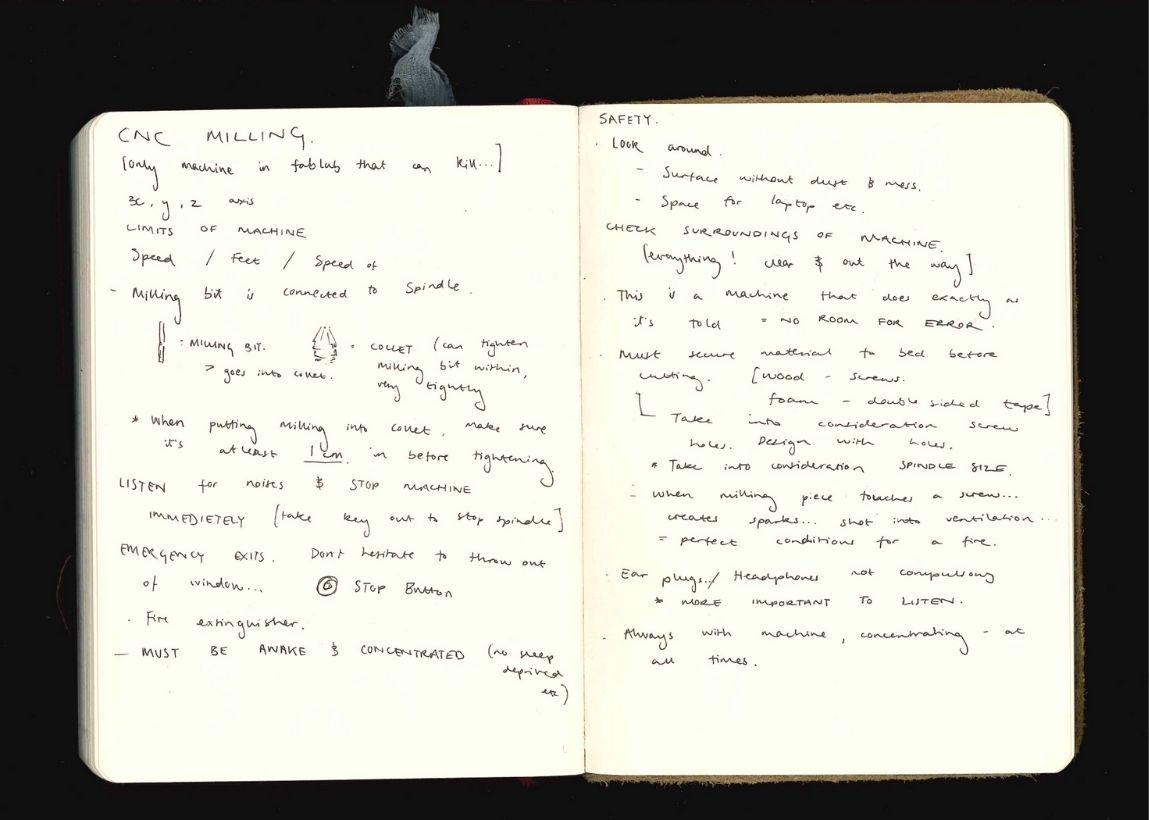 CNC MILLING.
[only machine in fablab that can kill...]
x, y, z axis
LIMITS OF MACHINE
Speed / Feet / Speed of
- Milling bit is connected to Spindle.
: MILLING BIT.
> goes into collet.
= COLLET (can tighten
milling bit within,
very tightly
* When putting milling into collet, make sure
it's at least 1 cm in before tightening.
LISTEN for noises & STOP MACHINE
IMMEDIETELY [take key out to stop spindle]
EMERGENCY EXITS. Don't hesitate to throw out
of window... STOP Button
. Fire extinguisher.
- MUST BE AWAKE & CONCENTRATED (no sleep
deprived
etc)
SAFETY.
. Look around.
- Surface without dust & mess.
- Space for laptop etc.
CHECK SURROUNDINGS OF MACHINE.
[everything! clear & out the way]
. This is a machine that does exactly as
it's told = NO ROOM FOR ERROR.
. Must secure material to bed before
cutting. [wood - screws.
foam - double sided tape]
Take into consideration screw
holes. Design with holes.
* Take into consideration SPINDLE SIZE.
- when milling piece touches a screw...
creates sparks... shot into ventilation...
= perfect conditions for a fire.
. Ear plugs./ Headphones not compulsory
* MORE IMPORTANT TO LISTEN.
. Always with machine, concentrating - at
all times.